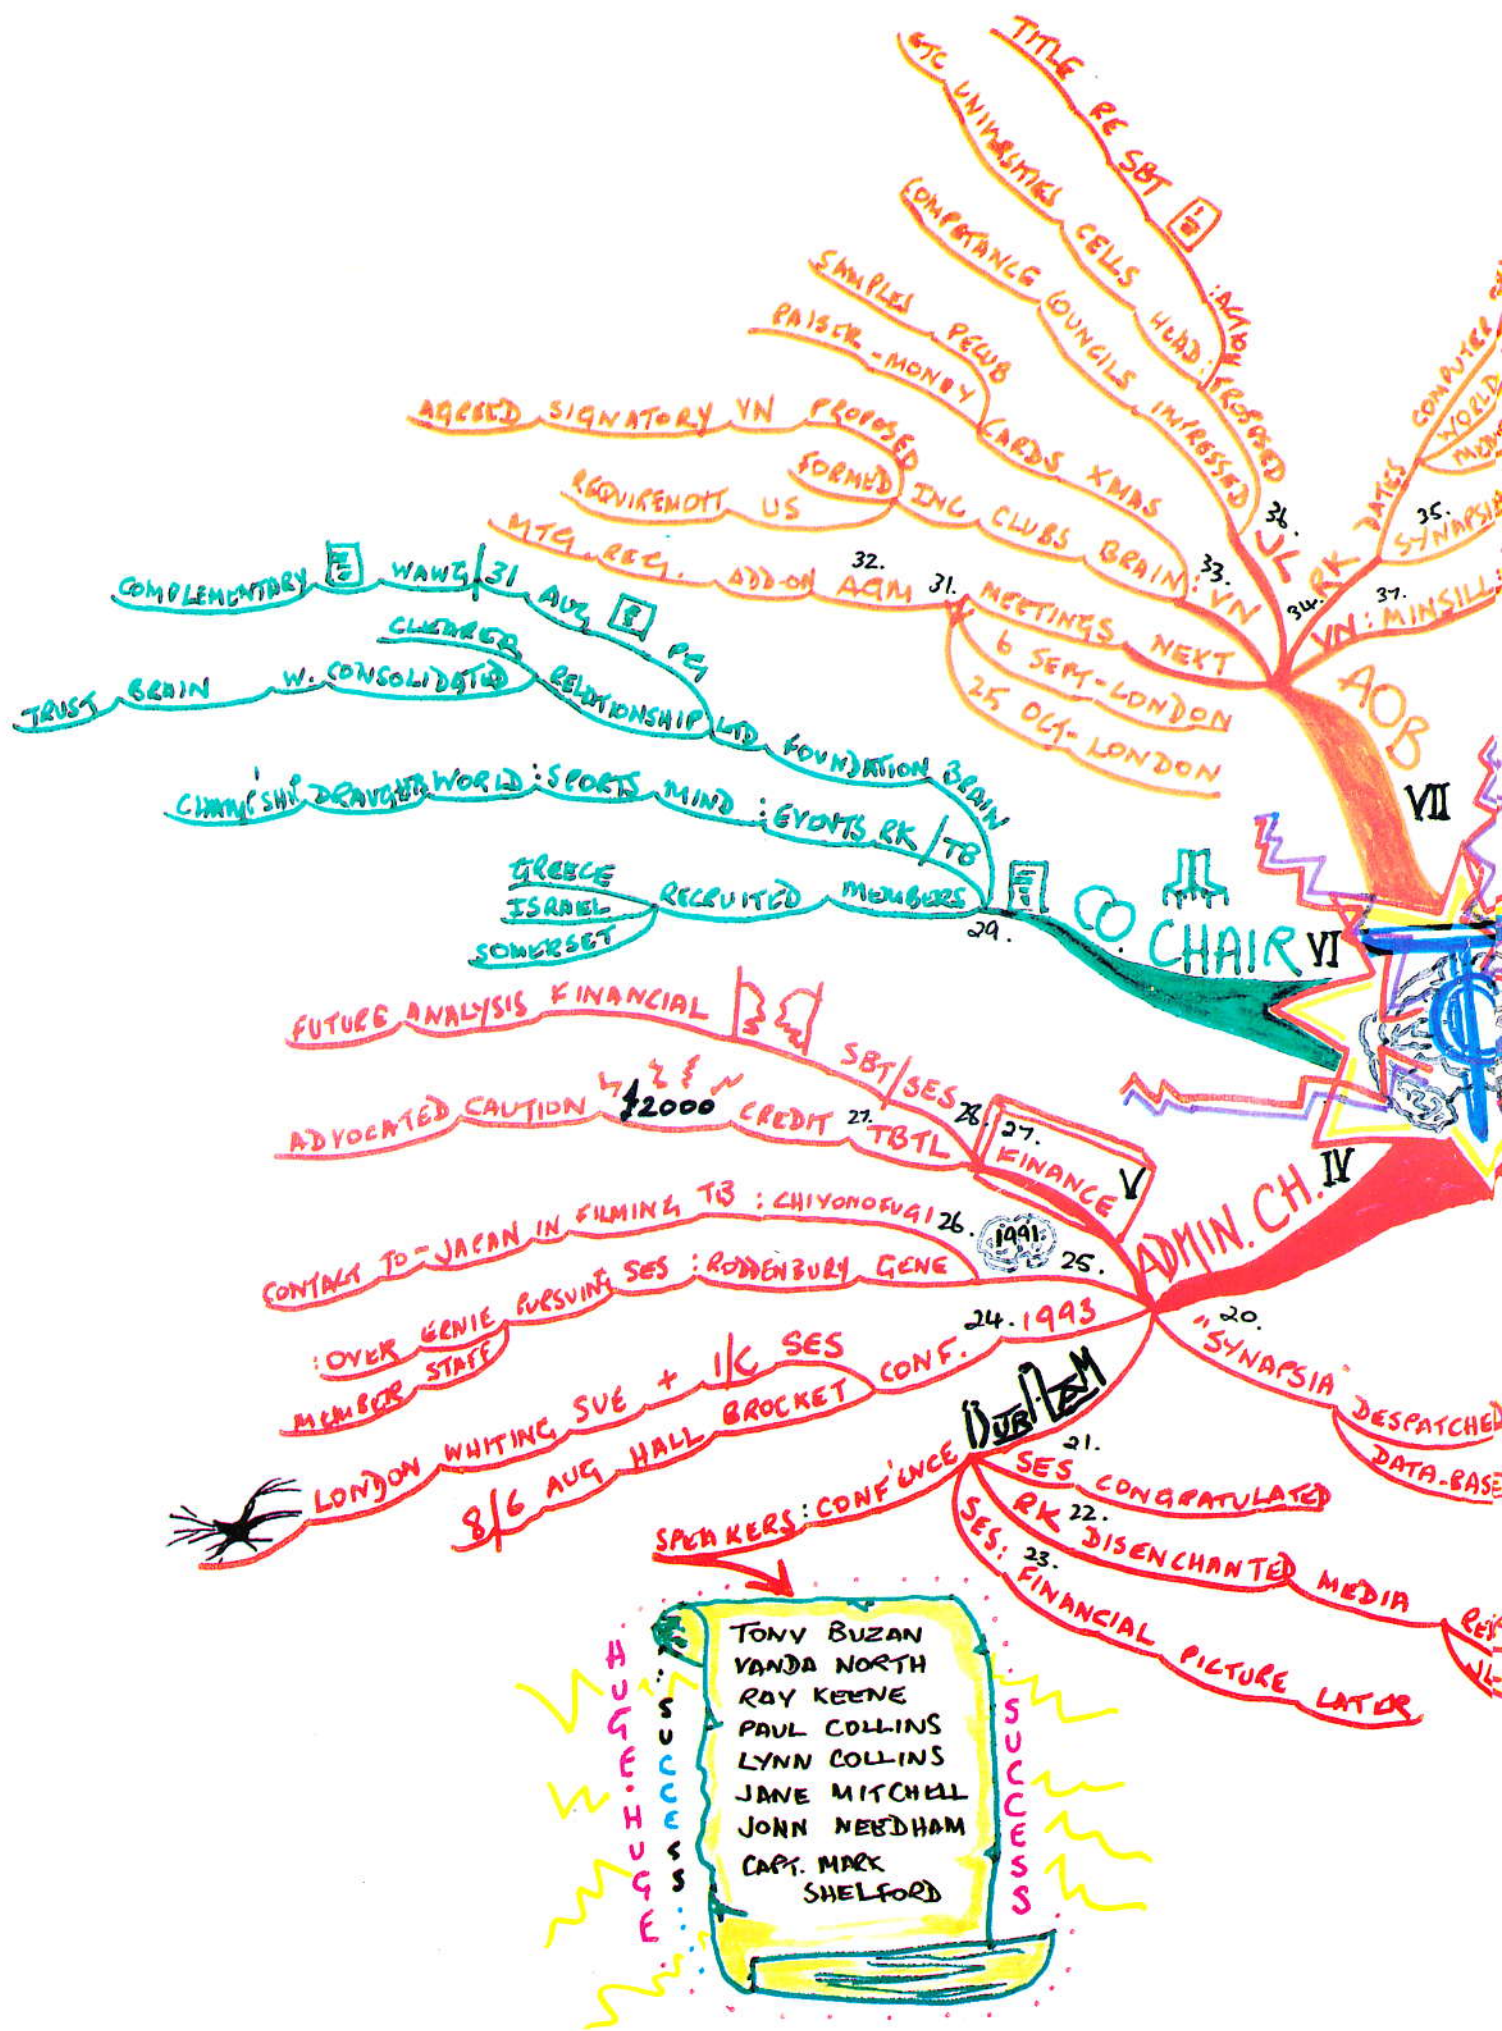 TITLE RE SBT
:ACTION
ETC UNIVERSITIES CELLS HEAD: PROPOSED
COMPETANCE COUNCILS IMPRESSED
36.
JL
SAMPLES PECUB
RAISER - MONEY CARDS XMAS
AGREED SIGNATORY VN PROPOSED
FORMED INC CLUBS BRAIN: VN
33.
REQUIREMENT US
MTG. REG. ADD-ON AGM 31. MEETINGS NEXT
32.
6 SEPT - LONDON
25 OCT - LONDON
34. RK DATES COMPUTER
WORLD
35.
SYNAPSIA
37.
VN: MINSILL:
AOB
VII
COMPLEMENTARY WAWG/31 AUG PG
CLEARED
TRUST BRAIN W. CONSOLIDATED RELATIONSHIP LTD FOUNDATION BRAIN
CHAMP'SHIP DRAUGHTS WORLD: SPORTS MIND: EVENTS RK/TB
GREECE
ISRAEL
SOMERSET
RECRUITED MEMBERS
29.
CHAIR VI
FUTURE ANALYSIS FINANCIAL SBT/SES 28.
ADVOCATED CAUTION £2000 CREDIT 27. TBTL
27.
FINANCE V
ADMIN. CH. IV
CONTACT TO - JAPAN IN FILMING TB: CHIYONOFUGI 26.
1991
25.
:OVER ERNIE PURSUING SES: RODDENBURY GENE
MEMBER STAFF
24. 1993
LONDON WHITING SUE + I/C SES CONF.
8/6 AUG HALL BROCKET
DURHAM
20.
"SYNAPSIA" DESPATCHED
DATA-BASE
21.
SES CONGRATULATED
22.
RK DISENCHANTED MEDIA
23.
SES: FINANCIAL PICTURE LATER
SPEAKERS: CONF'ENCE
HUGE.HUGE
:SUCCESS:
TONY BUZAN
VANDA NORTH
RAY KEENE
PAUL COLLINS
LYNN COLLINS
JANE MITCHELL
JOHN NEEDHAM
CAPT. MARK
SHELFORD
SUCCESS